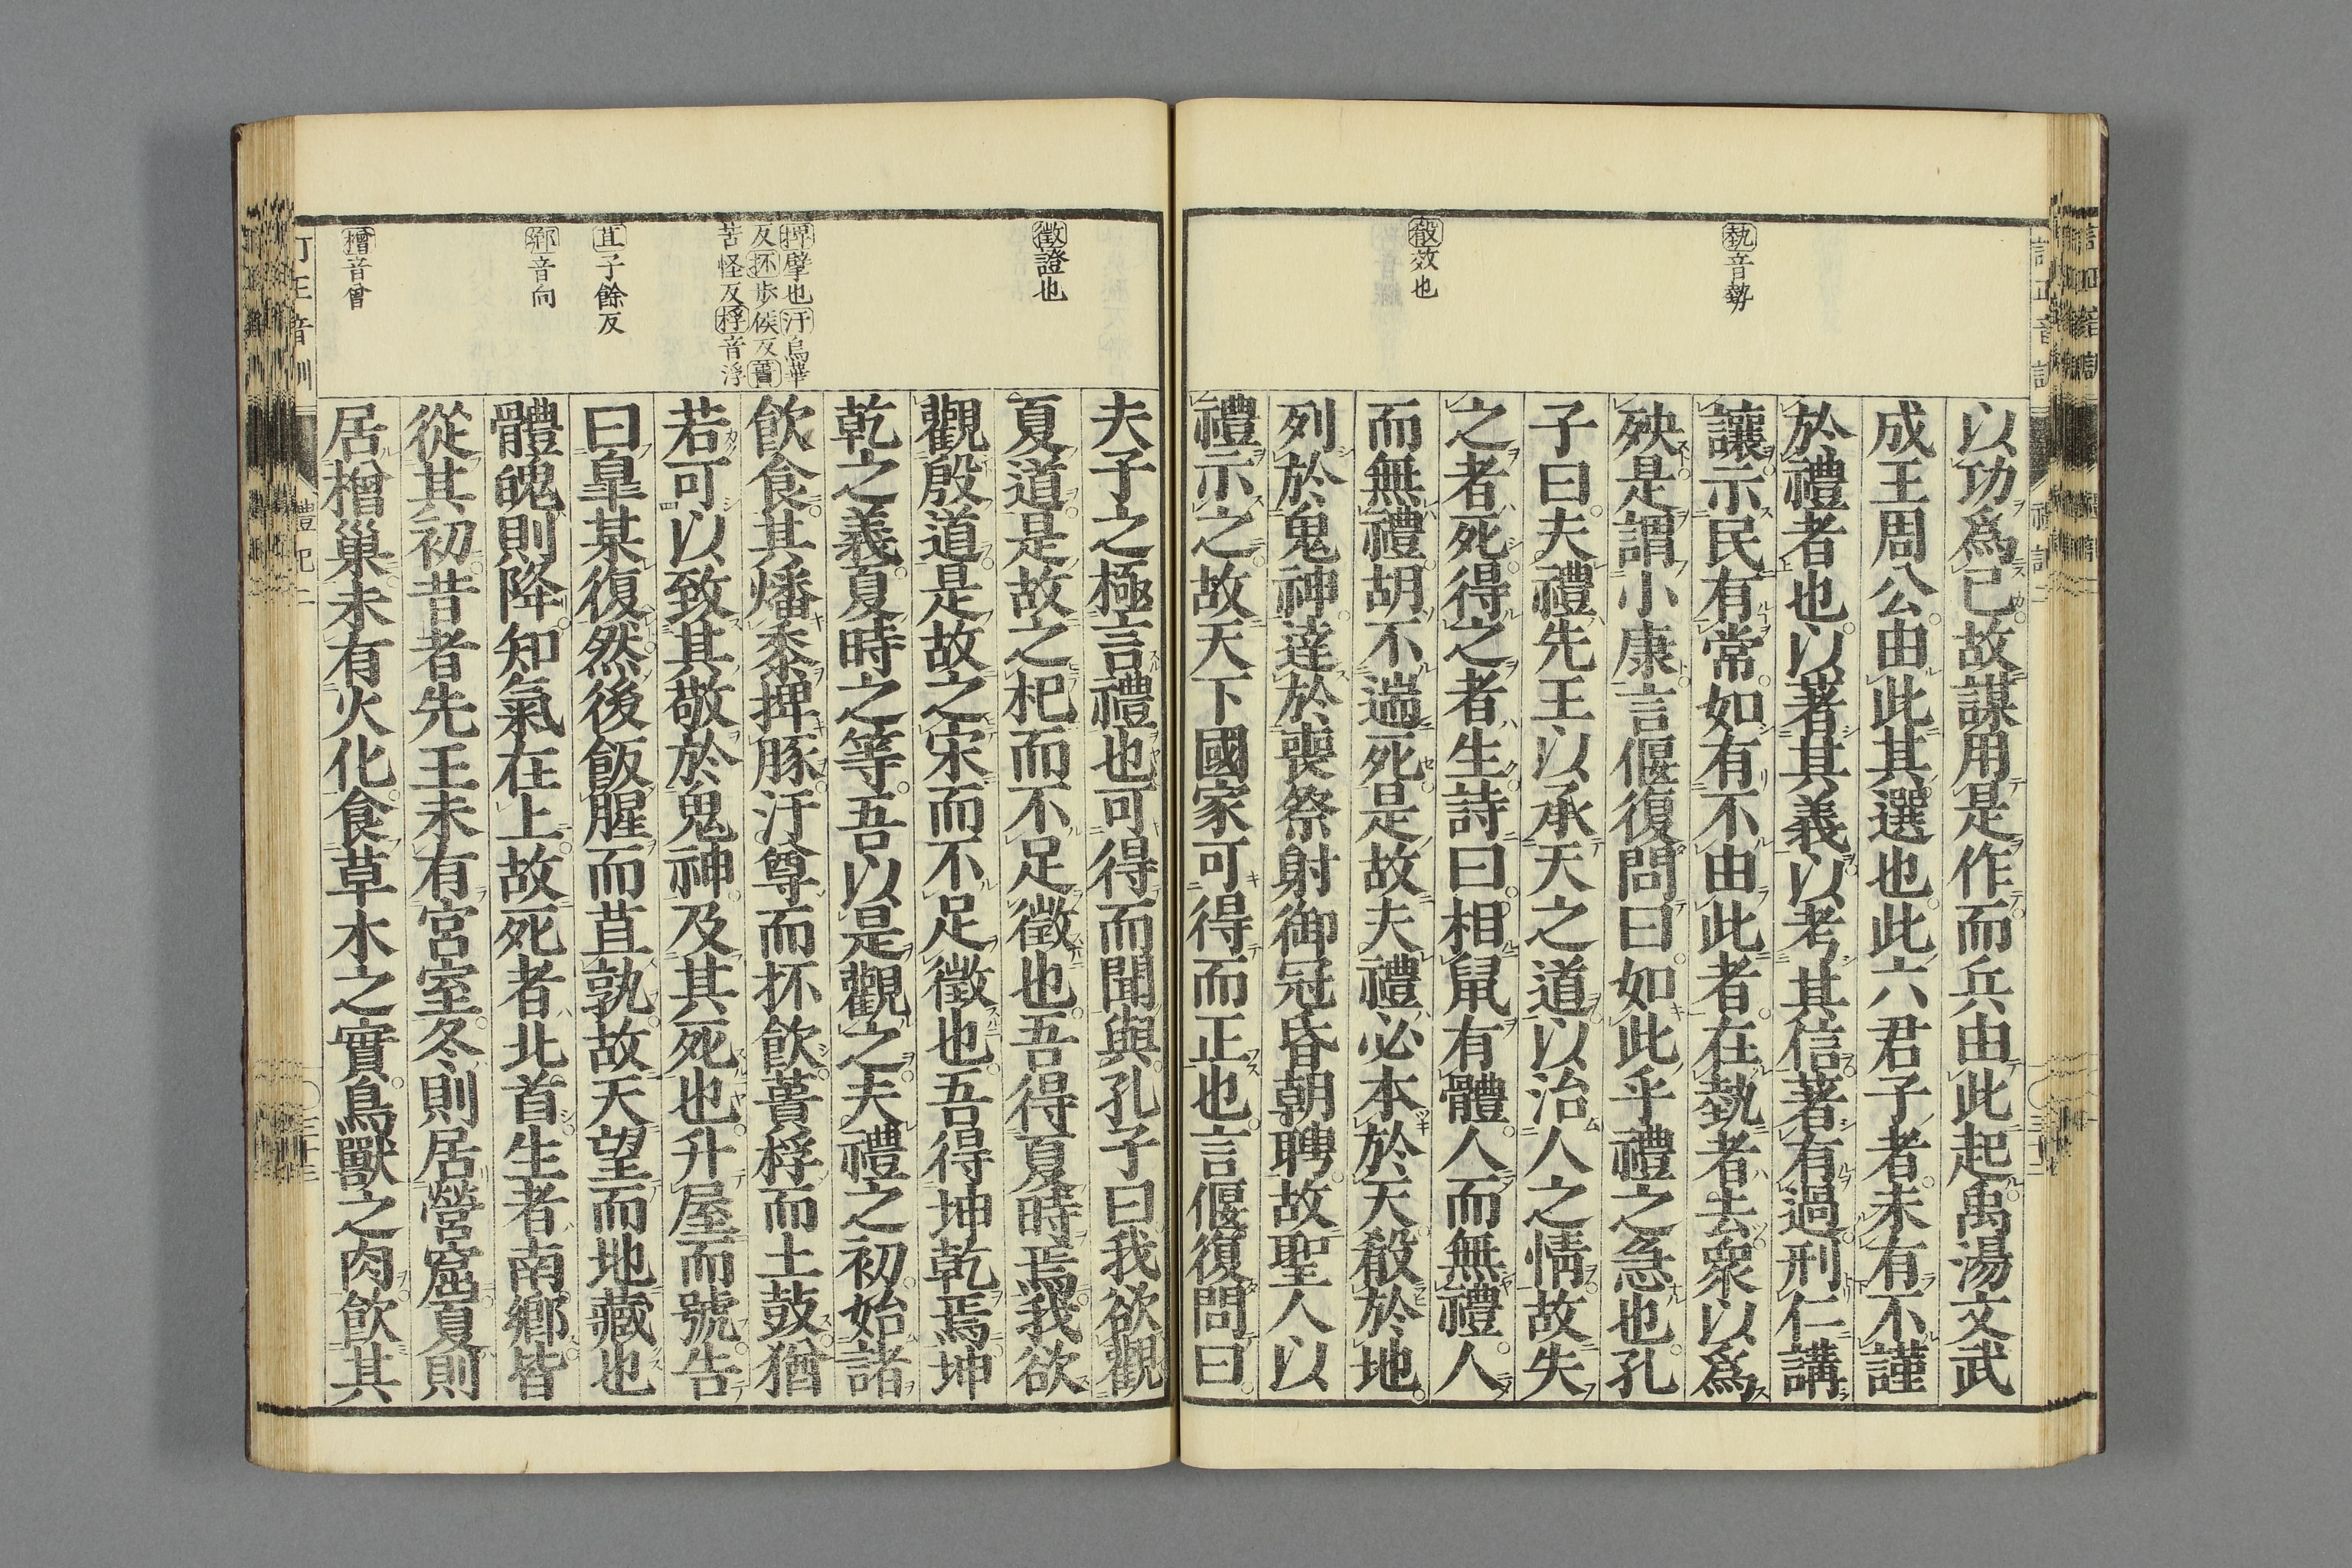 埶音勢
殽效也
以功爲己故謀用是作而兵由此起禹湯文武
成王周公由此其選也此六君子者未有不謹
於禮者也以著其義以考其信著有過刑仁講
讓示民有常如有不由此者在埶者去衆以爲
殃是謂小康言偃復問曰如此乎禮之急也孔
子曰夫禮先王以承天之道以治人之情故失
之者死得之者生詩曰相鼠有體人而無禮人
而無禮胡不遄死是故夫禮必本於天殽於地
列於鬼神達於喪祭射御冠昏朝聘故聖人以
禮示之故天下國家可得而正也言偃復問曰
徵證也
捭擘也汙烏華
反抔步侯反蕢
苦怪反桴音浮
苴子餘反
鄉音向
橧音曾
夫子之極言禮也可得而聞與孔子曰我欲觀
夏道是故之杞而不足徵也吾得夏時焉我欲
觀殷道是故之宋而不足徵也吾得坤乾焉坤
乾之義夏時之等吾以是觀之夫禮之初始諸
飲食其燔黍捭豚汙尊而抔飲蕢桴而土鼓猶
若可以致其敬於鬼神及其死也升屋而號告
曰皐某復然後飯腥而苴孰故天望而地藏也
體魄則降知氣在上故死者北首生者南鄉皆
從其初昔者先王未有宮室冬則居營窟夏則
居橧巢未有火化食草木之實鳥獸之肉飲其
禮記二